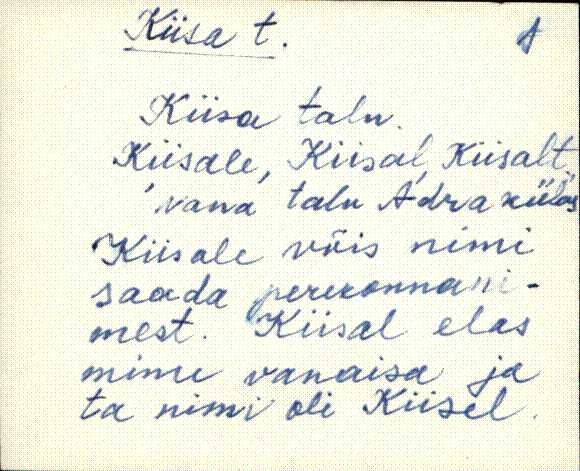 Kiisa t.
Kiisa talu.
Kiisale, Kiisal, Kiisalt
vana talu Adra külas
Kiisale võis nimi
saada perekonnani-
mest. Kiisal elas
minu vanaisa ja
ta nimi oli Kiisel.